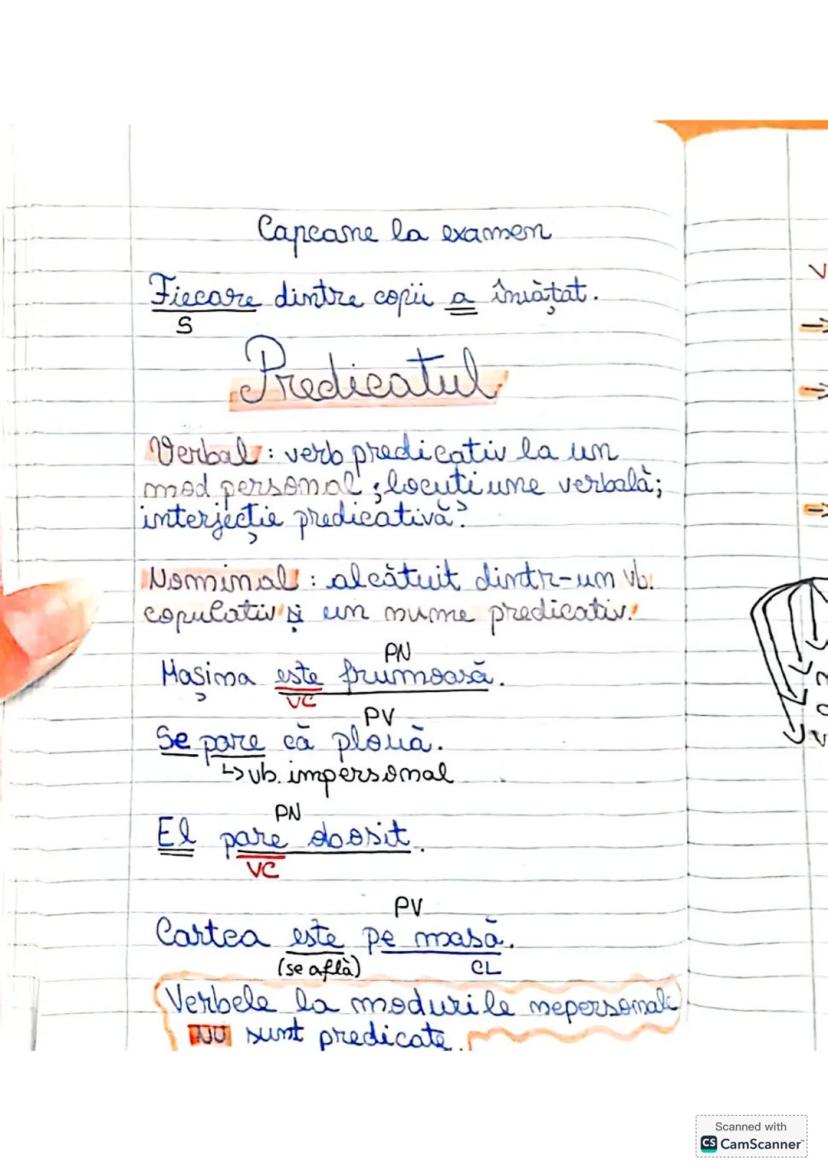 Capcane la examen
Fiecare dintre copii a învățat.
S
Predicatul
Verbal: verb predicativ la un
mod personal; locuțiune verbală;
interjecție predicativă.
Nominal: alcătuit dintr-un vb.
copulativ și un nume predicativ.
PN
Mașina este frumoasă.
VC
PV
Se pare că plouă.
↳ vb. impersonal
PN
El pare obosit.
VC
PV
Cartea este pe masă.
(se află) CL
Verbele la modurile nepersonale
NU sunt predicate.
Scanned with
CS CamScanner